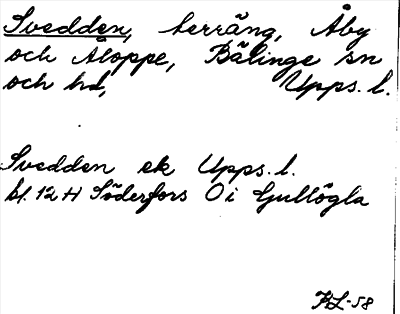 Svedden, terräng, Åby
och Åloppe, Bälinge sn
och hd, Upps. l.
Svedden ek Upps. l.
bl. 12 H Söderfors O i Gullögla
KL-58